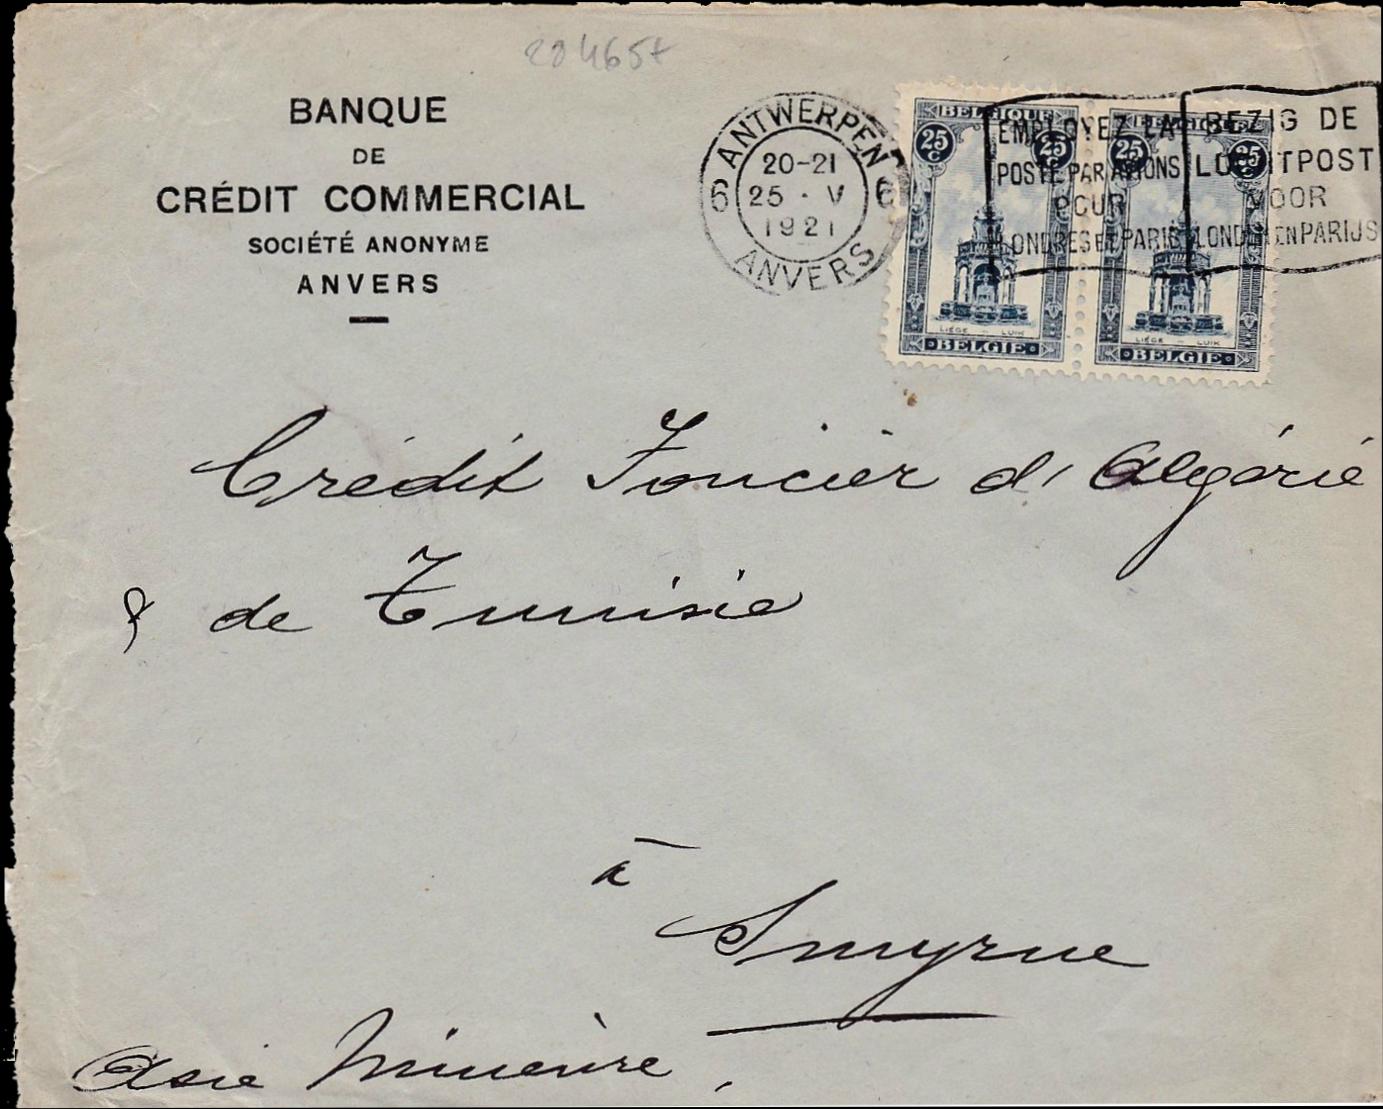 204657
BANQUE
DE
CRÉDIT COMMERCIAL
SOCIÉTÉ ANONYME
ANVERS
6 ANTWERPEN 6
20-21
25 · V
1921
ANVERS
BELGIQUE BELGIQUE
25 C 25 C 25 C 25 C
EMPLOYEZ LA
POSTE PAR AVIONS
POUR
LONDRES ET PARIS
BEZIG DE
LUCHTPOST
VOOR
LONDEN EN PARIJS
LIÉGE - LUIK LIÉGE - LUIK
BELGIË BELGIË
Crédit Foncier d'Algérie
& de Tunisie
à
Smyrne
Asie Mineure,